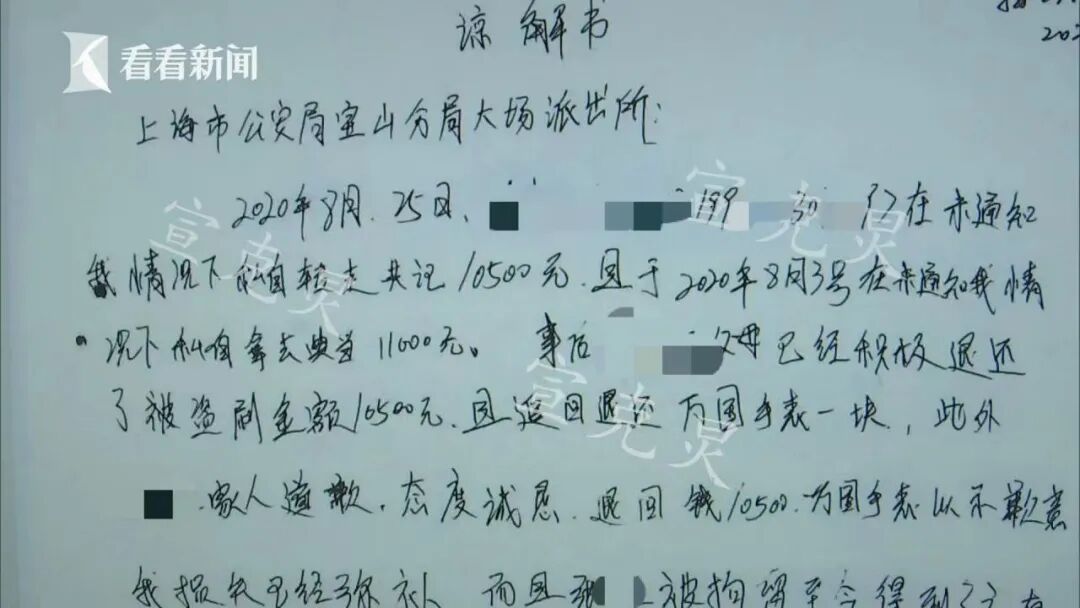 看看新闻
谅解书
202
上海市公安局宝山分局大场派出所:
2020年8月25日、 199 30 在未通知
我情况下私自转走共记10500元.且于2020年8月3号在未通知我情
况下私自拿去典当11000元。事后 父母已经积极退还
了被盗刷金额10500元.且返回退还万国手表一块,此外
家人道歉.态度诚恳.退回钱10500.万国手表以示歉意
我损失已经弥补 而且 被拘留至今得到了
宣克炅
宣克炅
宣克炅